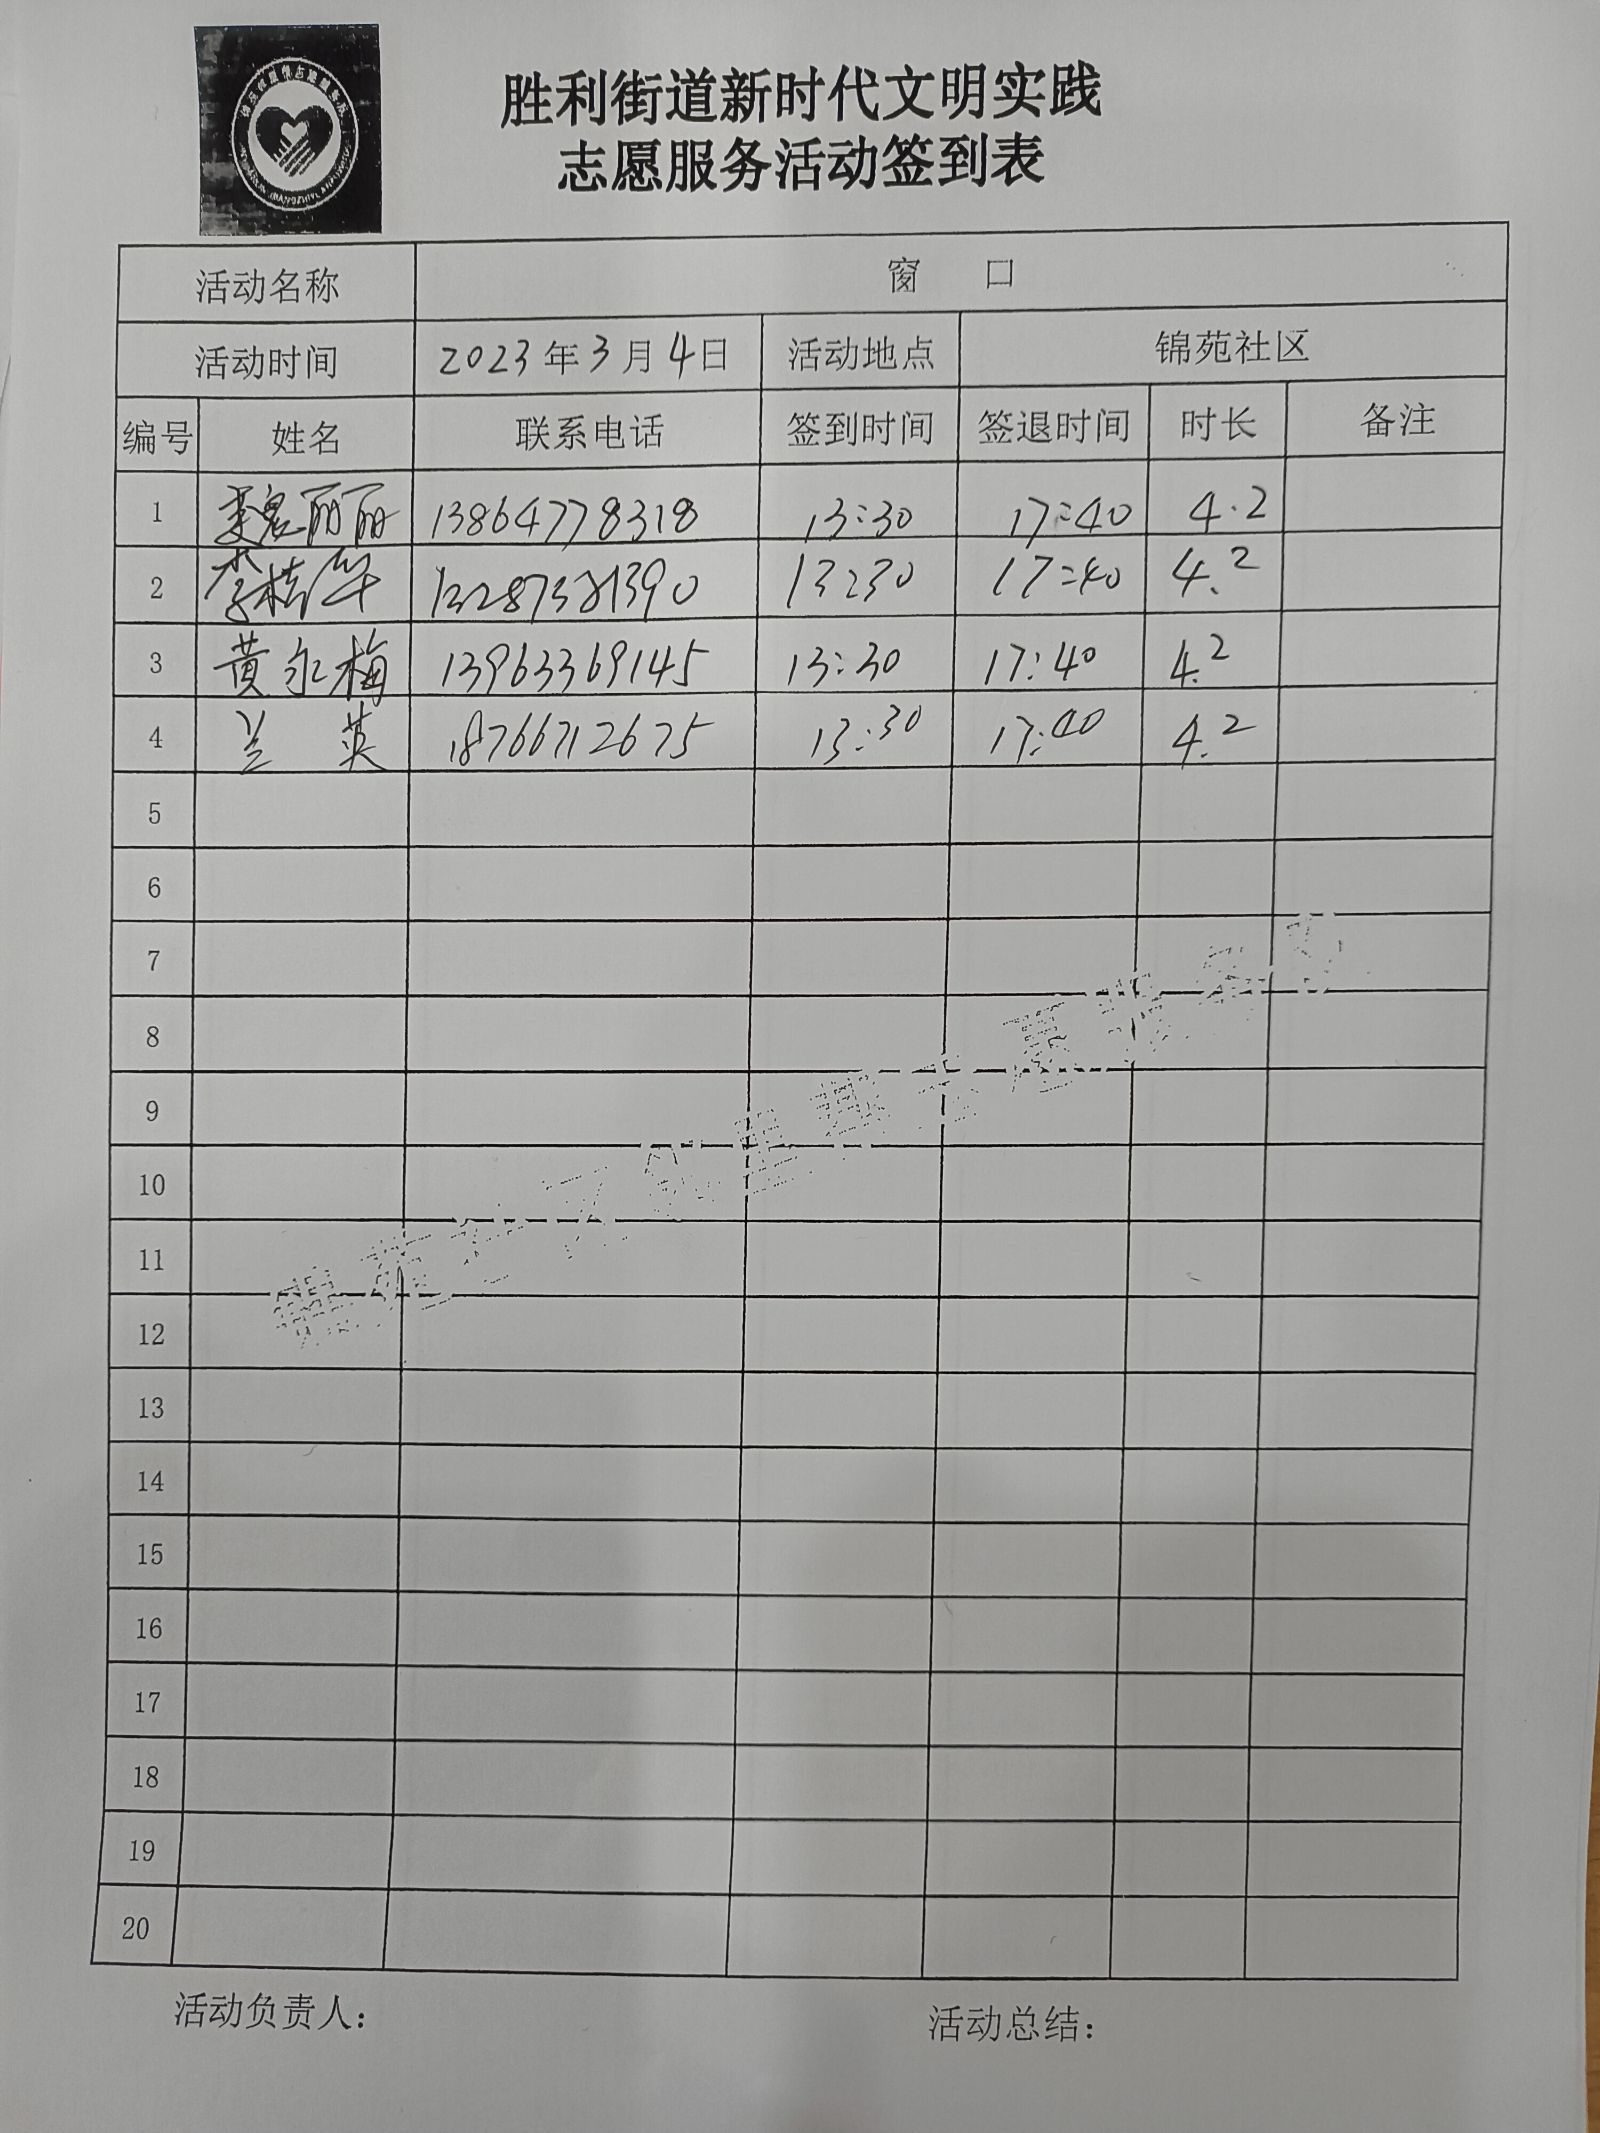 胜利街道新时代文明实践
志愿服务活动签到表
活动名称 窗 口
活动时间 2023年3月4日 活动地点 锦苑社区
编号 姓名 联系电话 签到时间 签退时间 时长 备注
1 魏丽丽 13864778318 13:30 17:40 4.2
2 李桂华 13:30 17:40 4.2
3 黄永梅 13963369145 13:30 17:40 4.2
4 兰 英 18766712675 13:30 17:40 4.2
5
6
7
8
9
10
11
12
13
14
15
16
17
18
19
20
活动负责人： 活动总结：